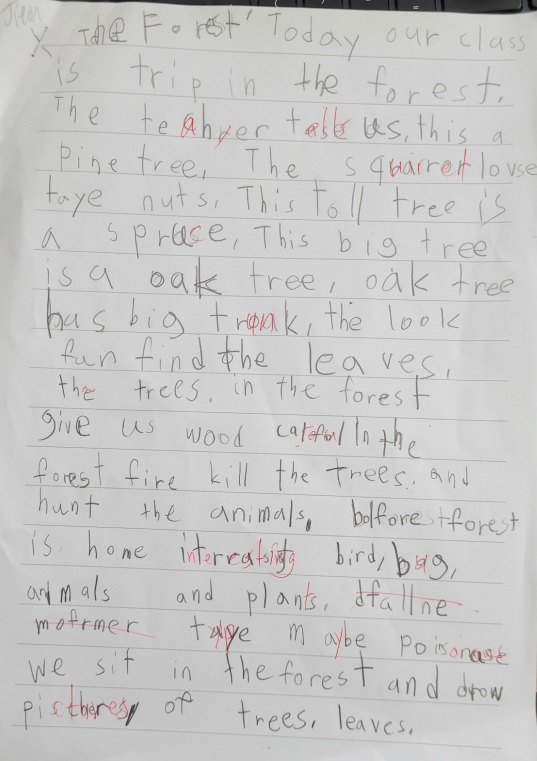 Jien
X The Forest' Today our class
is trip in the forest.
The teahyer us, this a
pine tree, The squarrel louse
taye nuts. This toll tree is
a spruce, This big tree
is a oak tree, oak tree
has big tronk, the look
fun find the leaves.
the trees. in the forest
give us wood In the
forest fire kill the trees. and
hunt the animals, forest
is home bird, bug,
animals and plants.
maybe
we sit in the forest and drow
of trees, leaves.